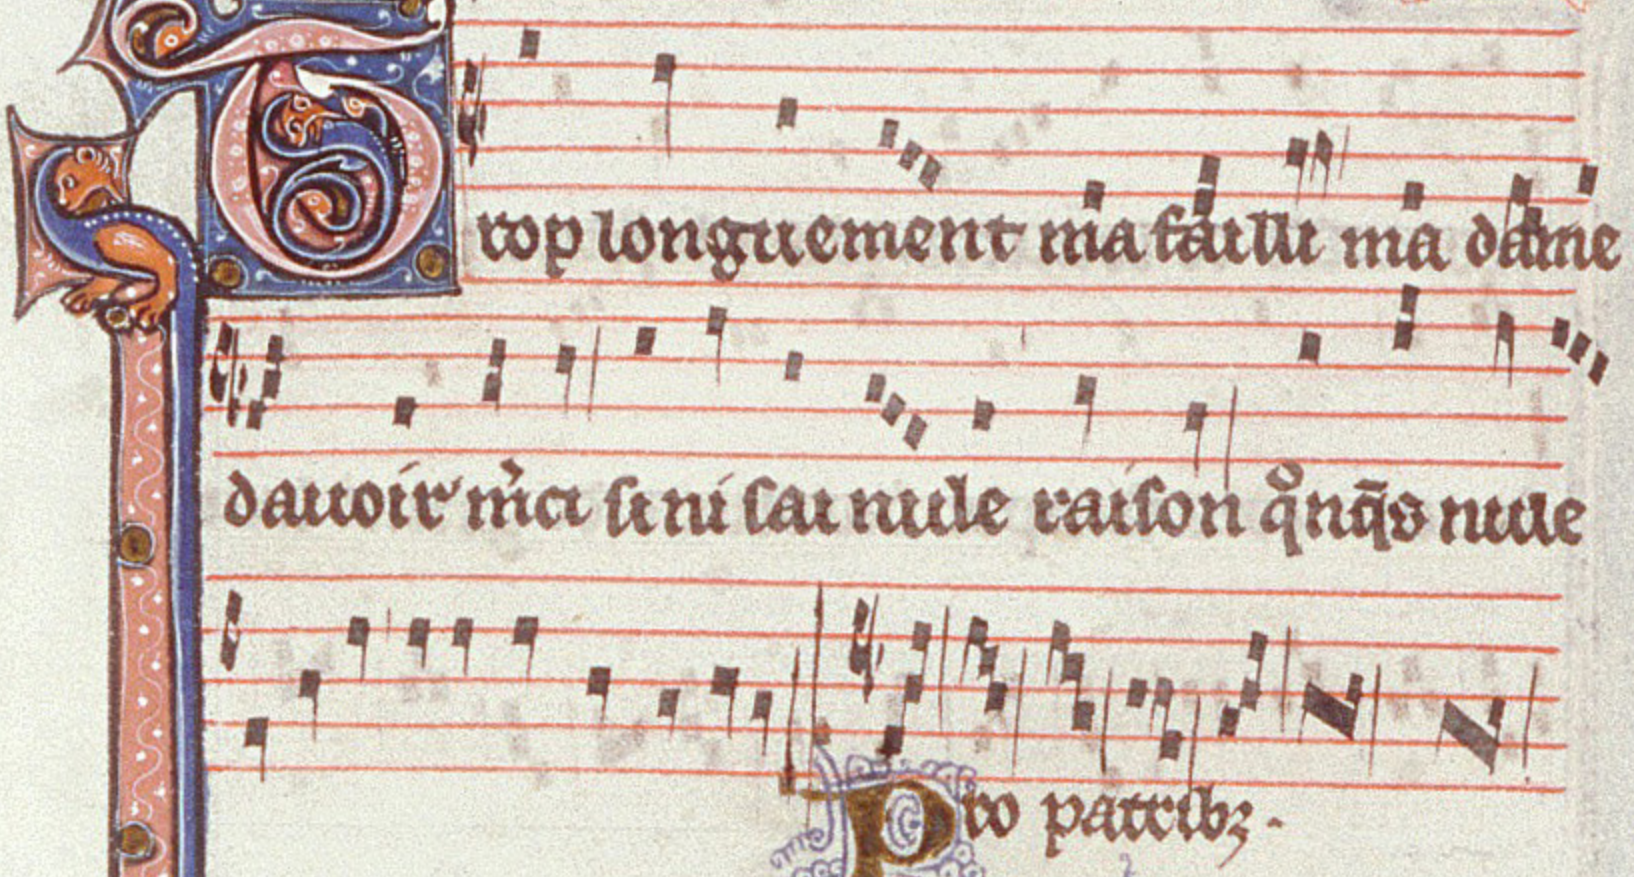 Trop longuement ma failli ma dame
dauoir m̾ci si ni sai nule raison qͦnq̄s nule
Pro patribꝫ.